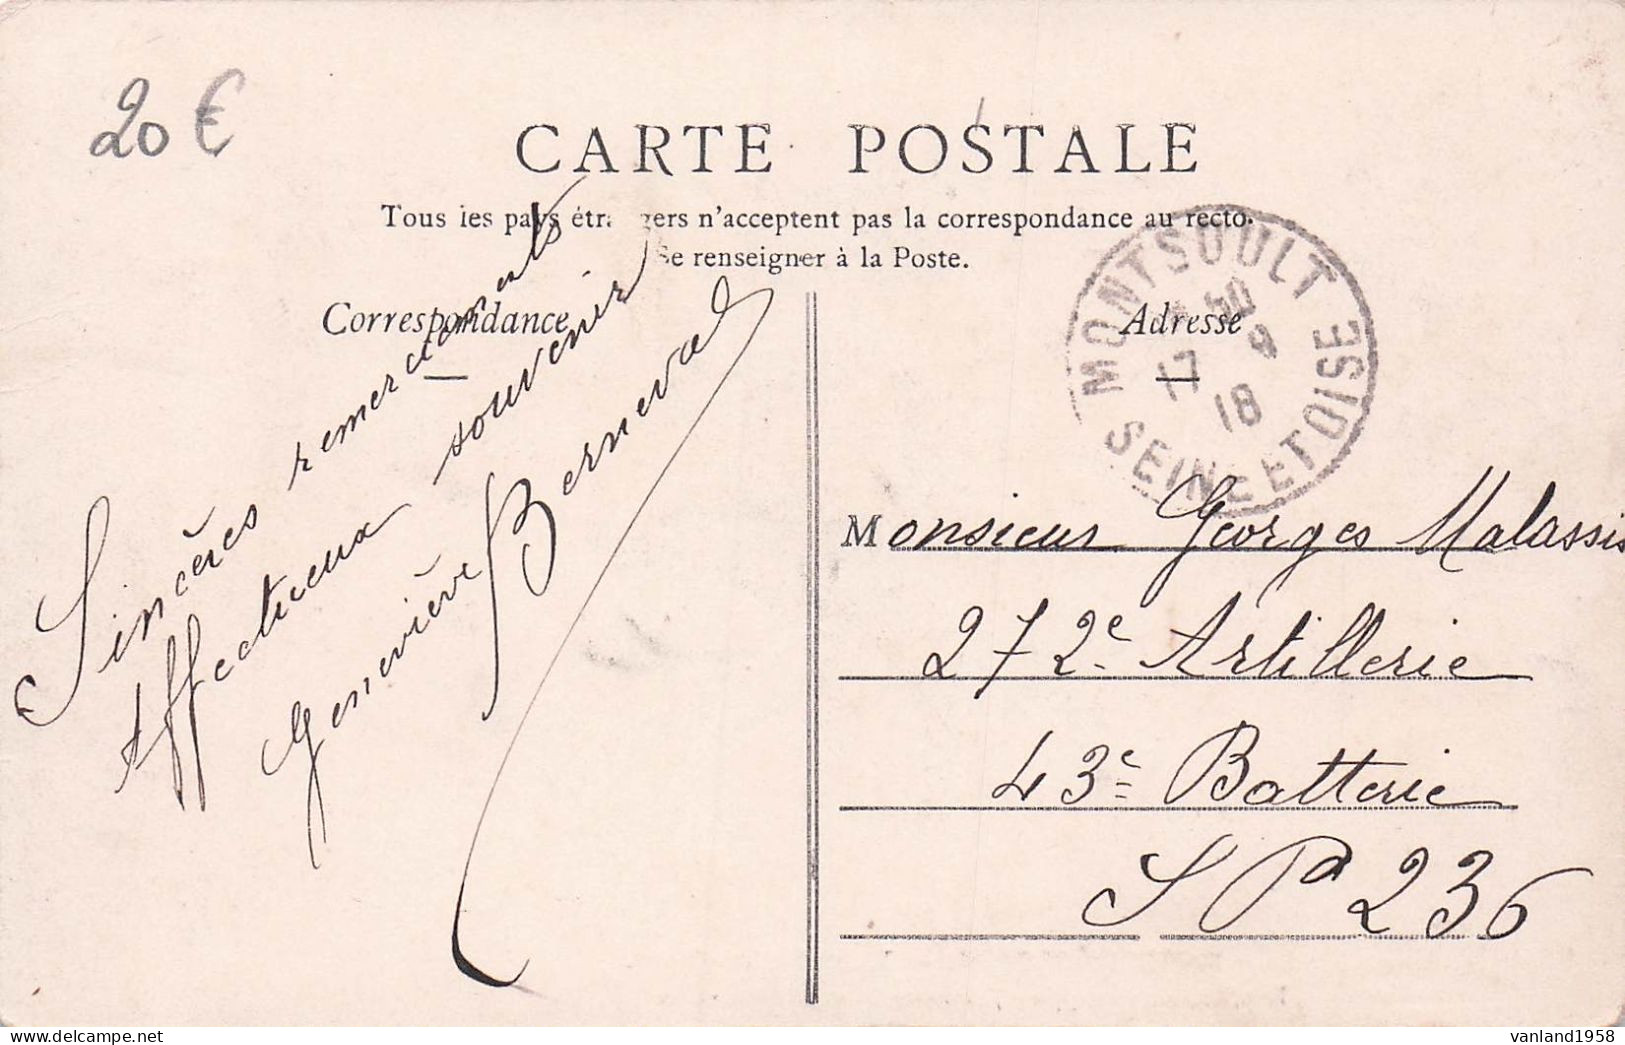 20 €
CARTE POSTALE
Tous les pays étrangers n'acceptent pas la correspondance au recto.
Se renseigner à la Poste.
Correspondance
Adresse
MONTSOULT
17 9
18
SEINE ET OISE
Sincères remerciements
Affectueux souvenir
Geneviève Berneval
Monsieur Georges Malassis
272e Artillerie
43e Batterie
SP 236
vanland1958